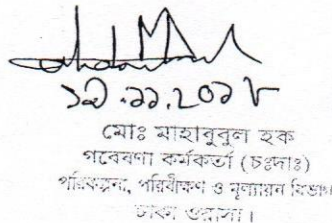 ১৯.১১.২০১৮
মোঃ মাহাবুবুল হক
গবেষণা কর্মকর্তা (চঃদাঃ)
পরিকল্পনা, পরিবীক্ষণ ও মূল্যায়ন বিভাগ
ঢাকা ওয়াসা।